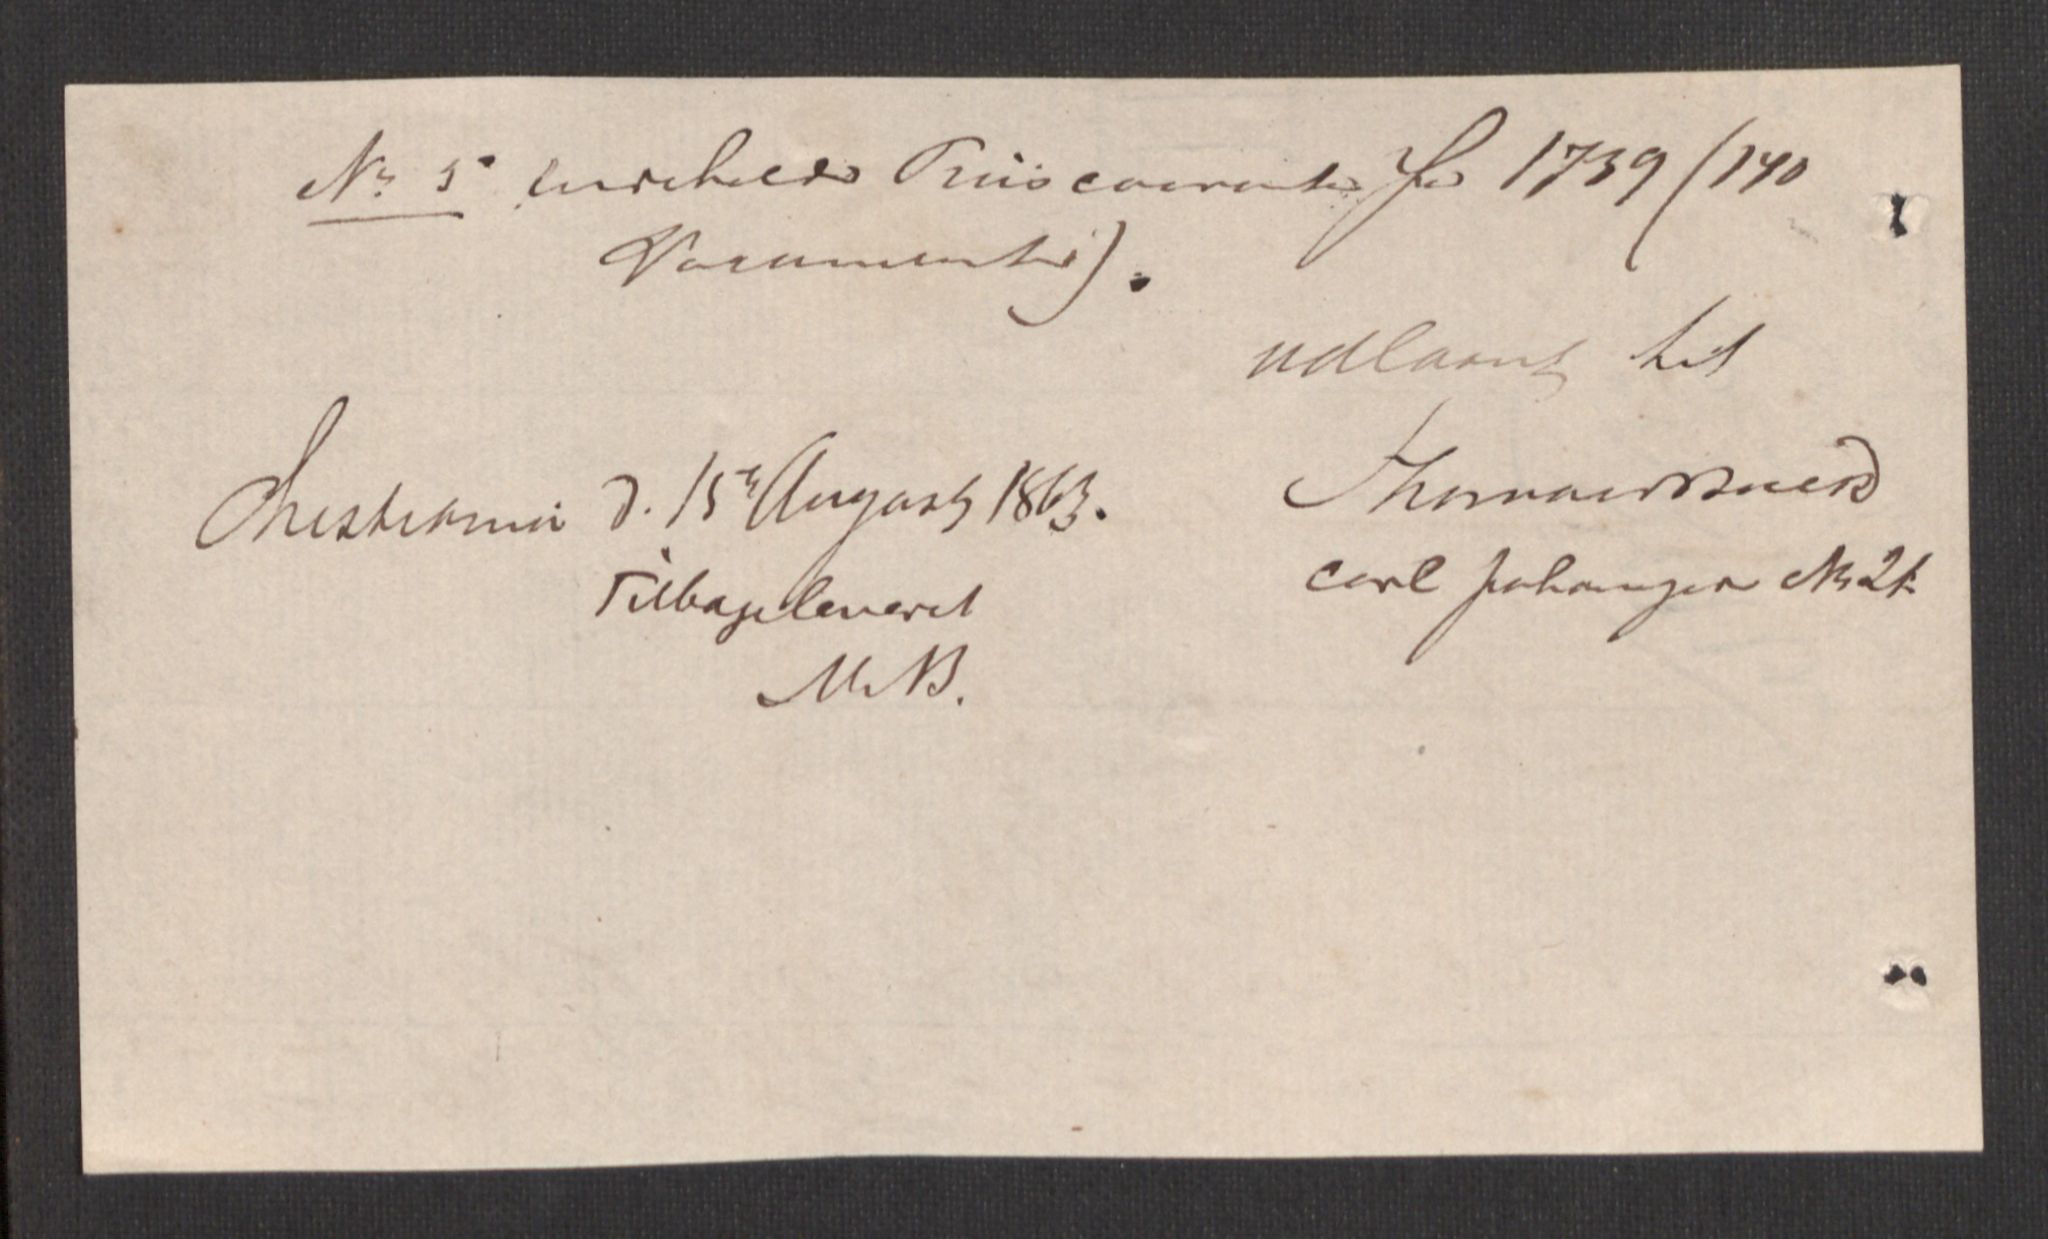 No 5 indeholder Priiscouranter for 1739 (140
Documenter).
udlaant til
Christiania d. 15de August 1863.
Carl Johansgd No 21
Tilbageleveret
M. B.